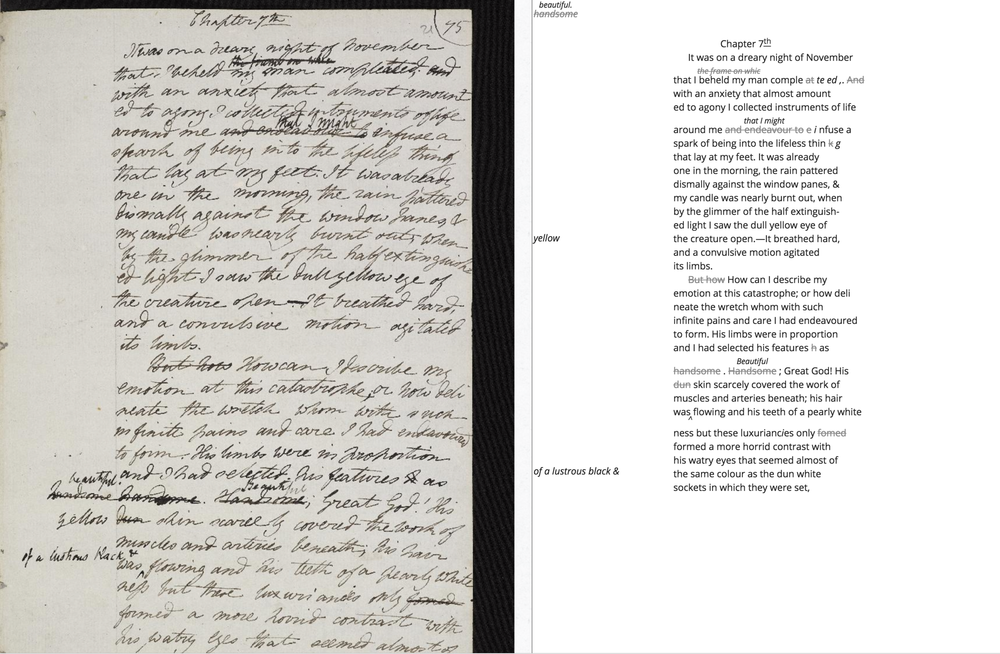 Chapter 7th
21
75
It was on a dreary night of November
the frame on whic
that I beheld my man compleated, and
with an anxiety that almost amount
ed to agony I collected instruments of life
that I might
around me and endeavour to infuse a
spark of being into the lifeless thing
that lay at my feet. It was already
one in the morning, the rain pattered
dismally against the window panes, &
my candle was nearly burnt out, when
by the glimmer of the half extinguish
ed light I saw the dull yellow eye of
the creature open—It breathed hard,
and a convulsive motion agitated
its limbs.
But how How can I describe my
emotion at this catastrophe; or how deli
neate the wretch whom with such
infinite pains and care I had endeavoured
to form. His limbs were in proportion
and I had selected his features h as
beautiful.
handsome
handsome. Handsome; Great God! His
Beautiful
yellow
dun skin scarcely covered the work of
muscles and arteries beneath; his hair
of a lustrous black &
was flowing and his teeth of a pearly white
ness but these luxuriancies only fomed
formed a more horrid contrast with
his watry eyes that seemed almost of
beautiful.
handsome
Chapter 7th
It was on a dreary night of November
the frame on whic
that I beheld my man comple at te ed ,. And
with an anxiety that almost amount
ed to agony I collected instruments of life
that I might
around me and endeavour to e i nfuse a
spark of being into the lifeless thin k g
that lay at my feet. It was already
one in the morning, the rain pattered
dismally against the window panes, &
my candle was nearly burnt out, when
by the glimmer of the half extinguish-
ed light I saw the dull yellow eye of
yellow
the creature open.—It breathed hard,
and a convulsive motion agitated
its limbs.
But how How can I describe my
emotion at this catastrophe; or how deli
neate the wretch whom with such
infinite pains and care I had endeavoured
to form. His limbs were in proportion
and I had selected his features h as
Beautiful
handsome . Handsome ; Great God! His
dun skin scarcely covered the work of
muscles and arteries beneath; his hair
was ^ flowing and his teeth of a pearly white
ness but these luxuriancies only fomed
formed a more horrid contrast with
his watry eyes that seemed almost of
of a lustrous black &
the same colour as the dun white
sockets in which they were set,